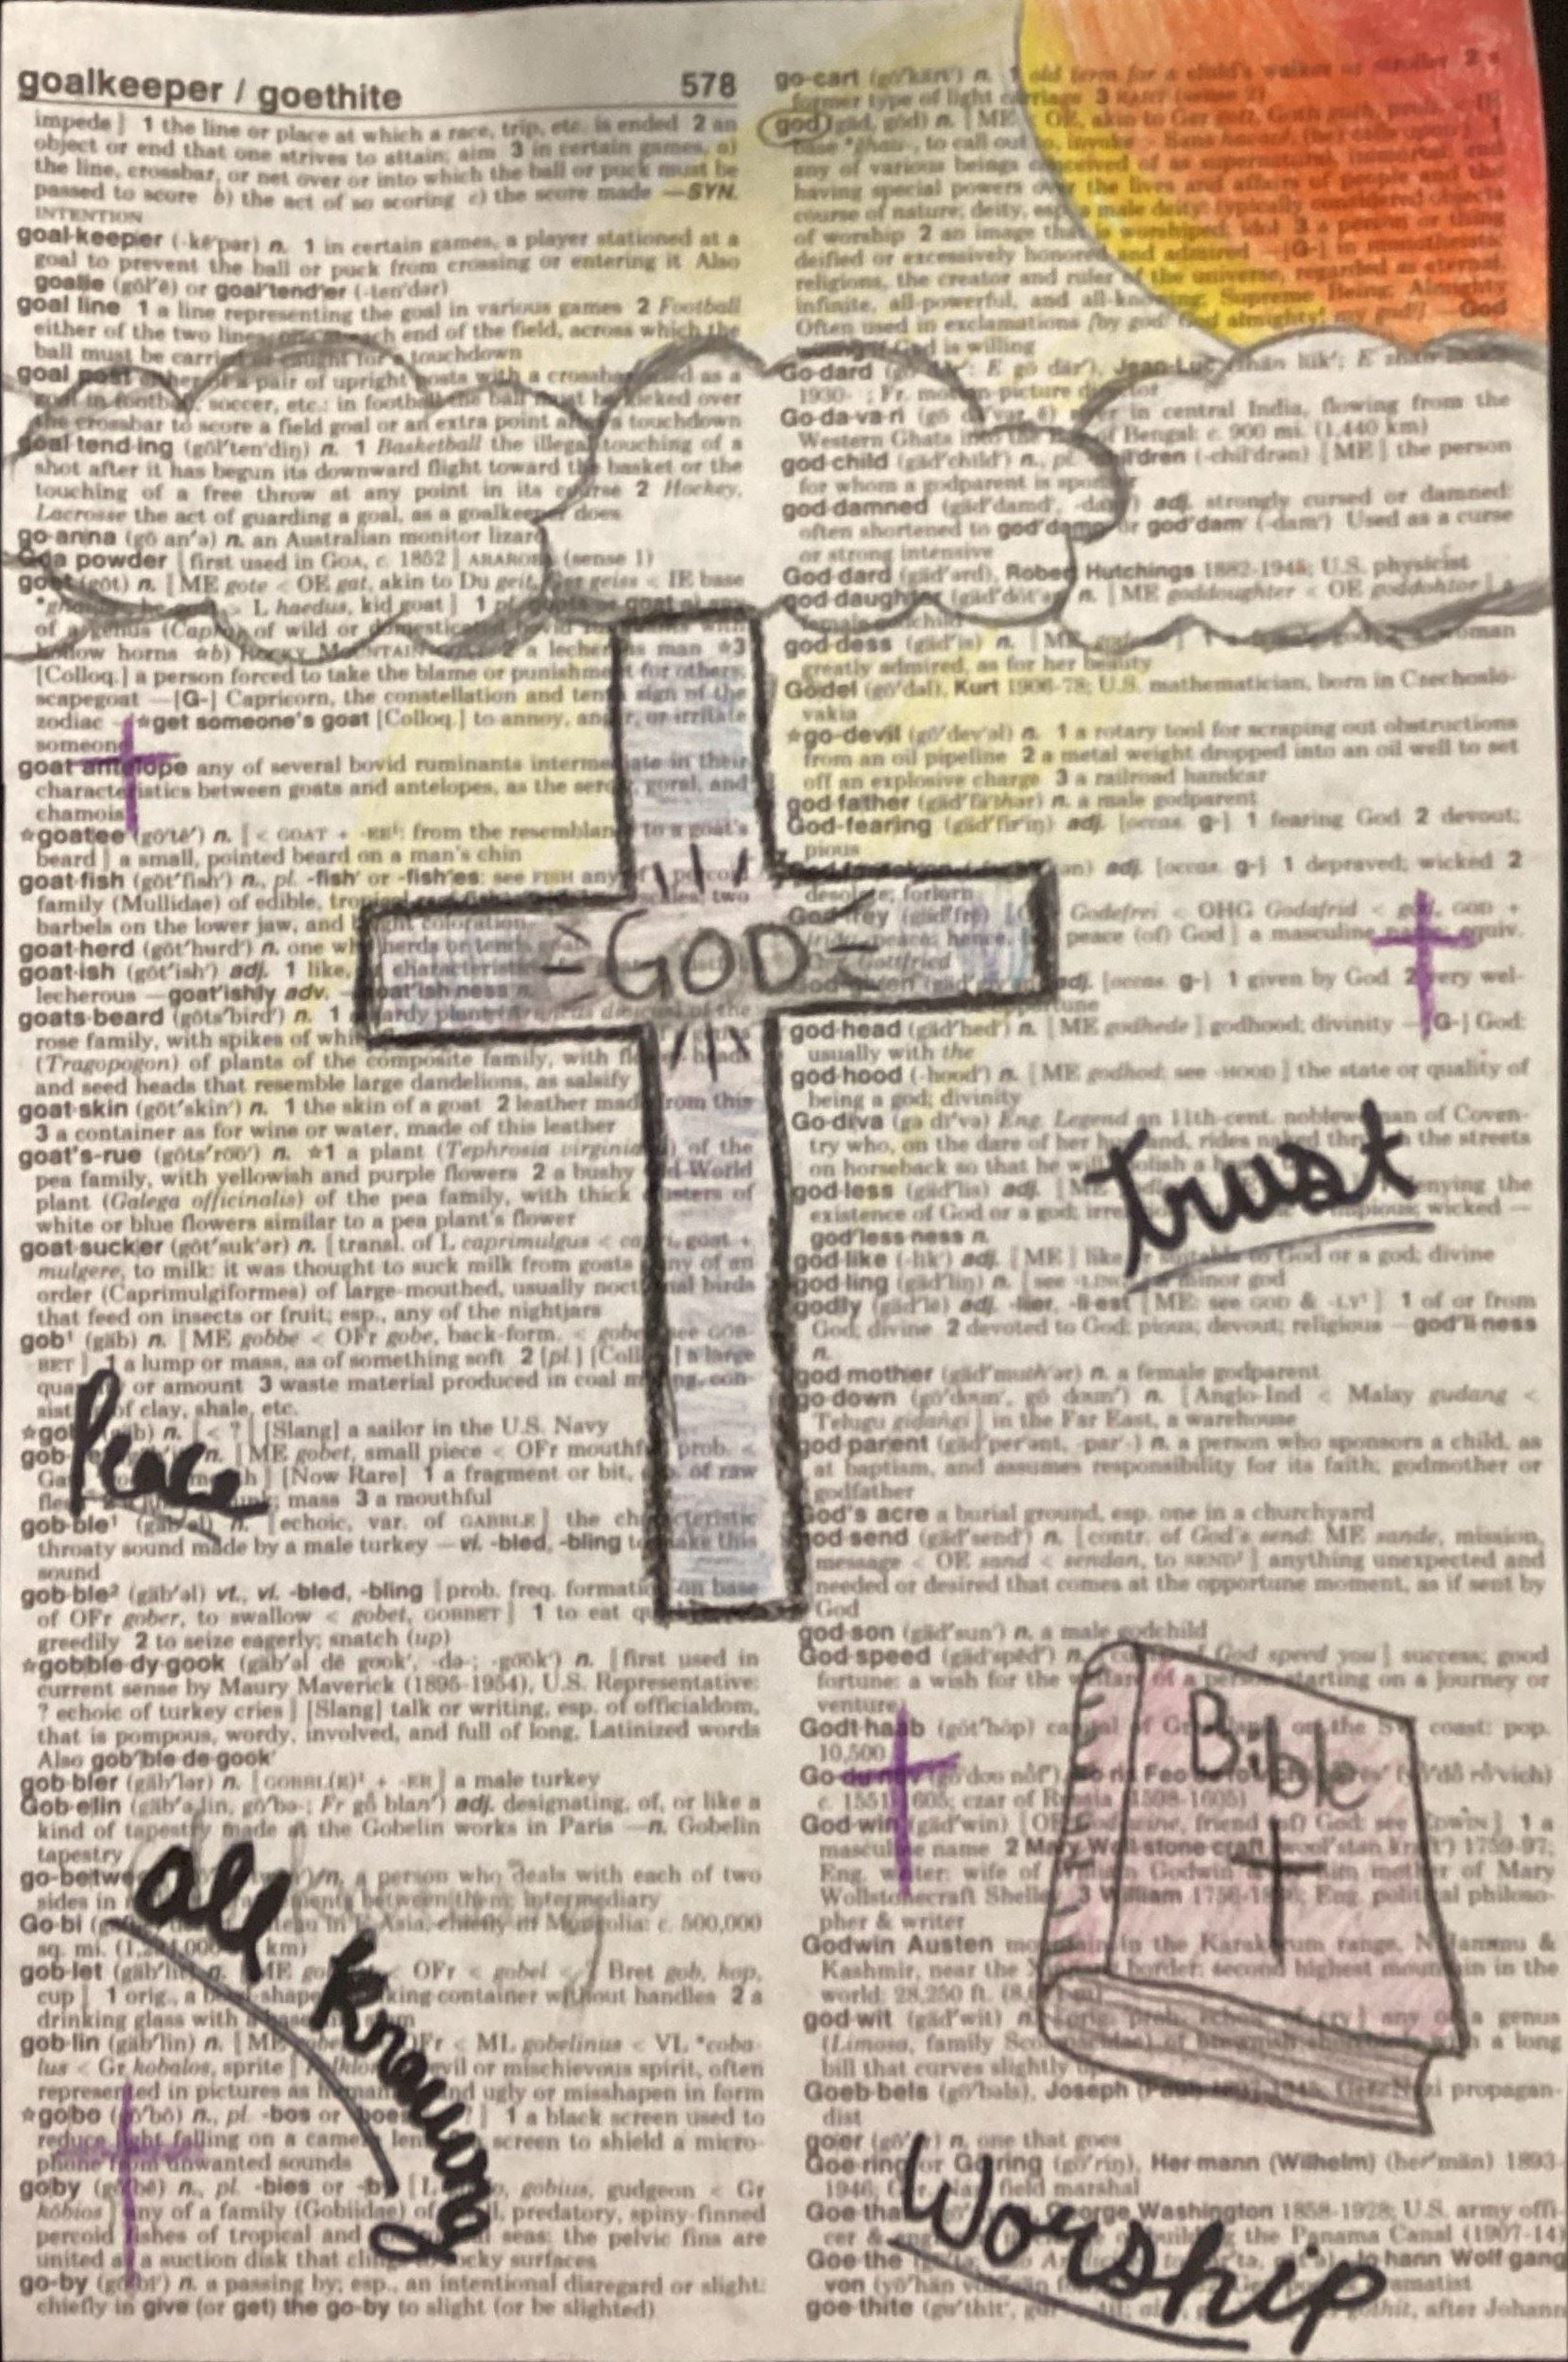 goalkeeper / goethite 578
impede] 1 the line or place at which a race, trip, etc. is ended 2 an
object or end that one strives to attain; aim 3 in certain games, a)
the line, crossbar, or net over or into which the ball or puck must be
passed to score b) the act of so scoring c) the score made —SYN.
INTENTION
goal·keeper (-kē′pər) n. 1 in certain games, a player stationed at a
goal to prevent the ball or puck from crossing or entering it Also
goalie (gōl′ē) or goal′tend′er (-ten′dər)
goal line 1 a line representing the goal in various games 2 Football
either of the two lines, one at each end of the field, across which the
ball must be carried or caught for a touchdown
goal post either of a pair of upright posts with a crossbar, used as a
goal in football, soccer, etc.: in football the ball must be kicked over
the crossbar to score a field goal or an extra point after a touchdown
goal·tend·ing (gōl′ten′diŋ) n. 1 Basketball the illegal touching of a
shot after it has begun its downward flight toward the basket or the
touching of a free throw at any point in its course 2 Hockey,
Lacrosse the act of guarding a goal, as a goalkeeper does
go·anna (gō an′ə) n. an Australian monitor lizard
Goa powder [first used in GOA, c. 1852] (sense 1)
goat (gōt) n. [ME gote < OE gat, akin to Du geit, Ger geiss < IE base
> L haedus, kid goat] 1
of a genus of wild or
hollow horns ☆b) ROCKY MOUNTAIN 2 a lecherous man ☆3
[Colloq.] a person forced to take the blame or punishment for others;
scapegoat —[G-] Capricorn, the constellation and tenth sign of the
zodiac —☆get someone's goat [Colloq.] to annoy, anger, or irritate
someone
goat antelope any of several bovid ruminants intermediate in their
characteristics between goats and antelopes, as the serow, goral, and
chamois
☆goatee (gō tē′) n. [< GOAT + -EE¹: from the resemblance to a goat's
beard] a small, pointed beard on a man's chin
goat·fish (gōt′fish′) n., pl. -fish′ or -fish′es: see FISH any of a percoid
family (Mullidae) of edible, tropical two
barbels on the lower jaw, and bright coloration
goat·herd (gōt′hurd′) n. one who herds or tends goats
goat·ish (gōt′ish′) adj. 1 like, characteristic
lecherous —goat′ishly adv. —goat′ish·ness n.
goats·beard (gōts′bird′) n. 1 a hardy plant of the
rose family, with spikes of white
(Tragopogon) of plants of the composite family, with heads
and seed heads that resemble large dandelions, as salsify
goat·skin (gōt′skin′) n. 1 the skin of a goat 2 leather made from this
3 a container as for wine or water, made of this leather
goat's-rue (gōts′rōō′) n. ☆1 a plant (Tephrosia virginiana) of the
pea family, with yellowish and purple flowers 2 a bushy Old World
plant (Galega officinalis) of the pea family, with thick clusters of
white or blue flowers similar to a pea plant's flower
goat·sucker (gōt′suk′ər) n. [transl. of L caprimulgus < capri, goat +
mulgere, to milk: it was thought to suck milk from goats] any of an
order (Caprimulgiformes) of large-mouthed, usually nocturnal birds
that feed on insects or fruit; esp., any of the nightjars
gob¹ (gäb) n. [ME gobbe < OFr gobe, back-form. < gobet: see GOBBET]
1 a lump or mass, as of something soft 2 [pl.] [Colloq.] a large
quantity or amount 3 waste material produced in coal mining, consisting
of clay, shale, etc.
Peace
☆gob² (gäb) n. [< ?] [Slang] a sailor in the U.S. Navy
n. [ME gobet, small piece < OFr mouthful, prob. <
] [Now Rare] 1 a fragment or bit, of raw
mass 3 a mouthful
gob·ble¹ (gäb′əl) n. [echoic, var. of GABBLE] the characteristic
throaty sound made by a male turkey —vi. -bled, -bling to make this
sound
gob·ble² (gäb′əl) vt., vi. -bled, -bling [prob. freq. formation on base
of OFr gober, to swallow < gobet, GOBBET] 1 to eat
greedily 2 to seize eagerly; snatch (up)
☆gobble·dy·gook (gäb′əl dē gook′, -də-; -gōōk′) n. [first used in
current sense by Maury Maverick (1895-1954), U.S. Representative:
? echoic of turkey cries] [Slang] talk or writing, esp. of officialdom,
that is pompous, wordy, involved, and full of long, Latinized words
Also gob′ble·de·gook′
gob·bler (gäb′lər) n. [GOBBL(E)¹ + -ER] a male turkey
Gob·elin (gäb′ə lin, gō′bə-; Fr gô blan′) adj. designating, of, or like a
kind of tapestry made at the Gobelin works in Paris —n. Gobelin
tapestry
all knowing
go-between n. a person who deals with each of two
sides in between them; intermediary
Go·bi in E Asia, chiefly in Mongolia: c. 500,000
sq. mi. km)
gob·let (gäb′lit) n. [ME < OFr < gobel < ? Bret gob, kop,
cup] 1 orig., a drinking container without handles 2 a
drinking glass with a base and stem
gob·lin (gäb′lin) n. [ME < OFr < ML gobelinus < VL *cobalus
< Gr kobalos, sprite] evil or mischievous spirit, often
represented in pictures as and ugly or misshapen in form
☆gobo (gō′bō) n., pl. -bos or -boes 1 a black screen used to
reduce light falling on a camera lens screen to shield a microphone
from unwanted sounds
goby (gō′bē) n., pl. -bies or -by [L gobio, gobius, gudgeon < Gr
kōbios] any of a family (Gobiidae) of small, predatory, spiny-finned
percoid fishes of tropical and seas: the pelvic fins are
united as a suction disk that clings to rocky surfaces
go-by (gō′bī′) n. a passing by; esp., an intentional disregard or slight:
chiefly in give (or get) the go-by to slight (or be slighted)
go-cart (gō′kärt′) n. 1 old term for a child's walker or stroller 2 a
former type of light carriage 3 KART (sense 2)
god (gäd, gôd) n. [ME < OE, akin to Ger gott, Goth guth, prob. < IE
base *ghau-, to call out to, invoke > Sans havaté, (he) calls upon] 1
any of various beings conceived of as supernatural, immortal, and
having special powers over the lives and affairs of people and the
course of nature; deity, esp. a male deity: typically considered objects
of worship 2 an image that is worshiped; idol 3 a person or thing
deified or excessively honored and admired —[G-] in monotheistic
religions, the creator and ruler of the universe, regarded as eternal,
infinite, all-powerful, and all-knowing; Supreme Being; Almighty
Often used in exclamations [by god! God almighty! my god!] —God
willing if God is willing
Go·dard Jean-Luc E
1930- ; Fr. motion-picture director
Go·da·va·ri (gō dä′və rē) river in central India, flowing from the
Western Ghats into the Bay of Bengal: c. 900 mi. (1,440 km)
god·child (gäd′child′) n., pl. -children (-chil′drən) [ME] the person
for whom a godparent is sponsor
god·damned (gäd′damd′, -dam′) adj. strongly cursed or damned:
often shortened to god′damn′ or god′dam′ (-dam′) Used as a curse
or strong intensive
God·dard (gäd′ərd), Robert Hutchings 1882-1945; U.S. physicist
god·daughter (gäd′dôt′ər) n. [ME goddoughter < OE goddohtor] a
female godchild
god·dess (gäd′is) n. [ME godesse] 1 a female god 2 a woman
greatly admired, as for her beauty
Gödel (gö′dəl), Kurt 1906-78; U.S. mathematician, born in Czechoslovakia
☆go-devil (gō′dev′əl) n. 1 a rotary tool for scraping out obstructions
from an oil pipeline 2 a metal weight dropped into an oil well to set
off an explosive charge 3 a railroad handcar
god·father (gäd′fä′thər) n. a male godparent
God-fearing (gäd′fir′iŋ) adj. [occas. g-] 1 fearing God 2 devout;
pious
God·forsaken adj. [occas. g-] 1 depraved; wicked 2
desolate; forlorn
God·frey (gäd′frē) [OFr Godefrei < OHG Godafrid < god, GOD +
fridu, peace: hence, peace (of) God] a masculine name: equiv.
Ger. Gottfried
-GOD-
God-given adj. [occas. g-] 1 given by God 2 very welcome;
opportune
god·head (gäd′hed′) n. [ME godhede] godhood; divinity —[G-] God:
usually with the
god·hood (-hood′) n. [ME godhod: see -HOOD] the state or quality of
being a god; divinity
Go·diva (gə dī′və) Eng. Legend an 11th-cent. noblewoman of Coventry
who, on the dare of her husband, rides naked through the streets
on horseback so that he will abolish a
trust
god·less (gäd′lis) adj. [ME denying the
existence of God or a god; impious; wicked —
god′less·ness n.
god·like (-līk′) adj. [ME] like or suitable to God or a god; divine
god·ling (gäd′liŋ) n. [see -LING¹] a minor god
godly (gäd′lē) adj. -lier, -li·est [ME: see GOD & -LY¹] 1 of or from
God; divine 2 devoted to God; pious; devout; religious —god′li·ness
n.
god·mother (gäd′muth′ər) n. a female godparent
go·down (gō′doun′, gō doun′) n. [Anglo-Ind < Malay gudang <
Telugu gidangi] in the Far East, a warehouse
god·parent (gäd′per′ənt, -par′-) n. a person who sponsors a child, as
at baptism, and assumes responsibility for its faith; godmother or
godfather
God's acre a burial ground, esp. one in a churchyard
god·send (gäd′send′) n. [contr. of God's send: ME sande, mission,
message < OE sand < sendan, to SEND¹] anything unexpected and
needed or desired that comes at the opportune moment, as if sent by
God
god·son (gäd′sun′) n. a male godchild
God·speed (gäd′spēd′) n. [contr. of God speed you] success; good
fortune: a wish for the welfare of a person starting on a journey or
venture
Godt·haab (gôt′hôp) capital of Greenland, on the SW coast: pop.
10,500
Go·du·nov (gô′doo nôf′), Bo·ris Feo·do·ro·vich
c. 1551-1605; czar of Russia (1598-1605)
Bible
God·win (gäd′win) [OE Godewine, friend (of) God: see EDWIN] 1 a
masculine name 2 Mary Woll·stone·craft (wool′stən kraft′) 1759-97;
Eng. writer: wife of William Godwin & mother of Mary
Wollstonecraft Shelley 3 William 1756-1836; Eng. political philosopher
& writer
Godwin Austen mountain in the Karakorum range, N Jammu &
Kashmir, near the border: second highest mountain in the
world: 28,250 ft.
god·wit (gäd′wit) n. any of a genus
(Limosa, family Scolopacidae) of brownish with a long
bill that curves slightly up
Goeb·bels (gö′bəls), Joseph (Paul) 1897-1945; Ger. Nazi propagandist
goer (gō′ər) n. one that goes
Goe·ring or Gö·ring (gö′riŋ), Her·mann (Wilhelm) (her′män) 1893-
1946; Ger. Nazi field marshal
Goe·thals George Washington 1858-1928; U.S. army officer
& engineer building the Panama Canal (1907-14)
Goe·the Johann Wolfgang
von dramatist
goe·thite after Johann
Worship